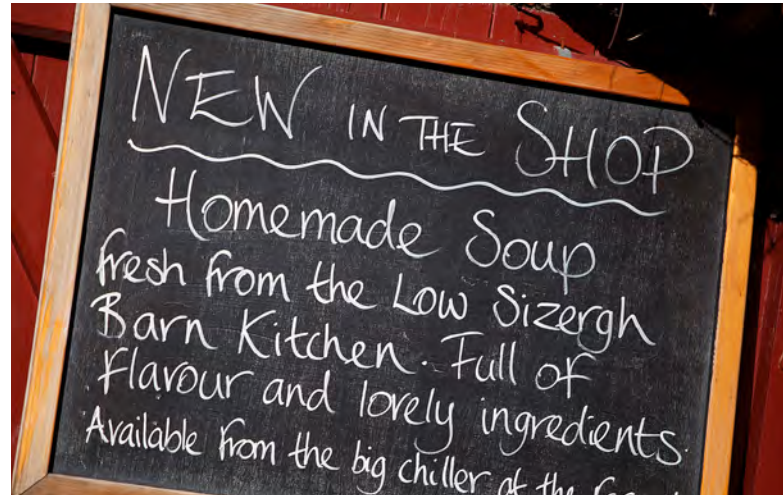 NEW IN THE SHOP
Homemade Soup
fresh from the Low Sizergh
Barn Kitchen. Full of
flavour and lovely ingredients.
Available from the big chiller at the